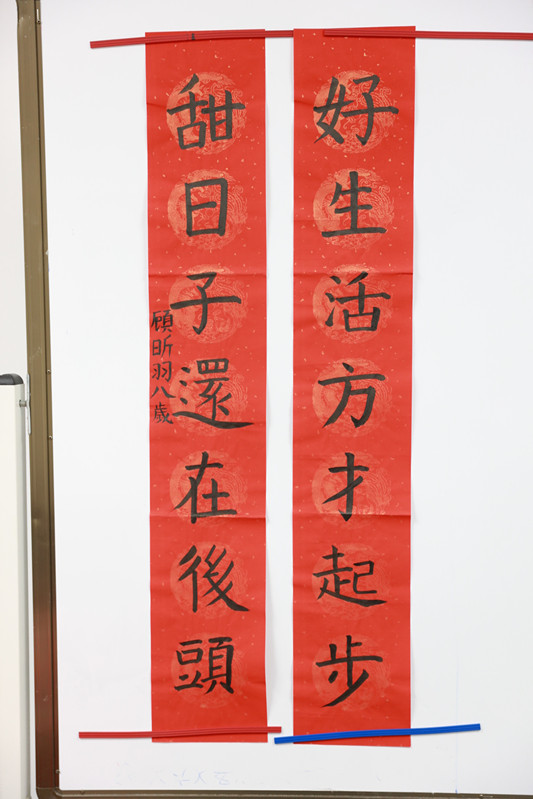 好生活方才起步
甜日子還在後頭
顧昕羽八歲